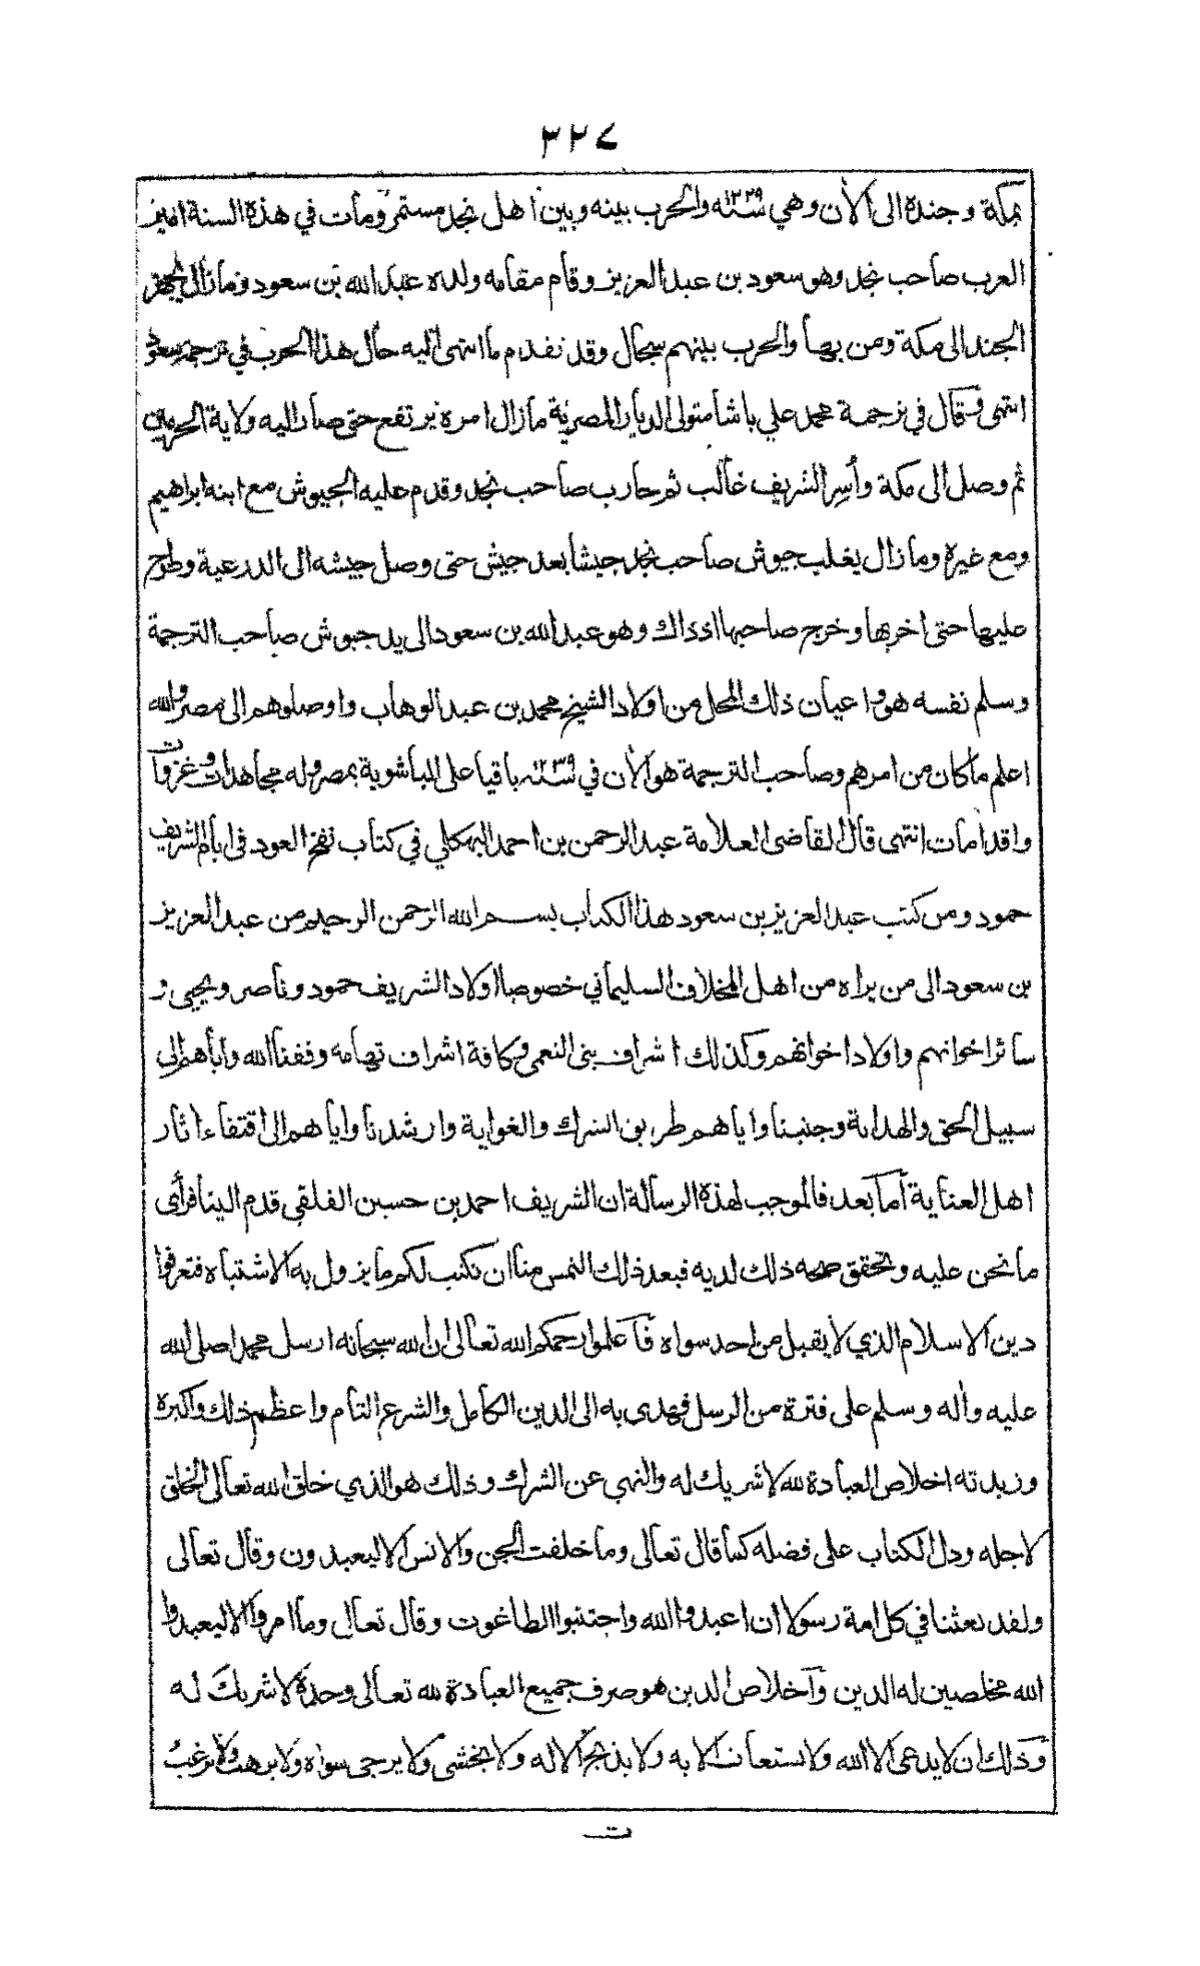 ٣٢٧
بمكة وجنده الى الآن وهي سنة ١٢٢٩ والحرب بينه وبين اهل نجد مستمر ومات في هذه السنة امير
العرب صاحب نجد وهو سعود بن عبد العزيز وقام مقامه ولده عبد الله بن سعود وما زال يجهز
الجند الى مكة ومن بها والحرب بينهم سجال وقد تقدم ما انتهى اليه حال هذا الحرب في ترجمة سعود
انتهى وقال في ترجمة محمد علي باشا متولى الديار المصرية ما زال امره يرتفع حتى صار اليه ولاية الحرمين
ثم وصل الى مكة وأسر الشريف غالب ثم حارب صاحب نجد وقدم عليه الجيوش مع ابنه ابراهيم
ومع غيره وما زال يغلب جيوش صاحب نجد جيشا بعد جيش حتى وصل جيشه الى الدرعية وطرح
عليها حتى اخربها وخرج صاحبها اذ ذاك وهو عبد الله بن سعود الى يد جيوش صاحب الترجمة
وسلم نفسه هو واعيان ذلك المحل من اولاد الشيخ محمد بن عبد الوهاب واوصلوهم الى مصر والله
اعلم ما كان من امرهم وصاحب الترجمة هو الآن في سنة ١٢٣٩ باقيا على الباشوية بمصر وله مجاهدات وغزوات
واقدامات انتهى قال القاضى العلامة عبد الرحمن بن احمد البهكلي في كتاب نفح العود في ايام الشريف
حمود ومن كتب عبد العزيز بن سعود هذا الكتاب بسم الله الرحمن الرحيم من عبد العزيز
بن سعود الى من يراه من اهل المخلاف السليماني خصوصا اولاد الشريف حمود وناصر ويحيى و
سائر اخوانهم واولاد اخوانهم وكذلك اشراف بنى النعمي وكافة اشراف تهامه وفقنا الله واياهم الى
سبيل الحق والهداية وجنبنا واياهم طريق الشرك والغواية وارشدنا واياهم الى اقتفاء اثار
اهل العناية أما بعد فالموجب لهذه الرسالة ان الشريف احمد بن حسين الفلقى قدم الينا فرأى
ما نحن عليه وتحقق صحه ذلك لديه فبعد ذلك التمس منا ان نكتب لكم ما يزول به الاشتباه فتعرفوا
دين الاسلام الذي لا يقبل من احد سواه فاعلموا رحمكم الله تعالى ان الله سبحانه ارسل محمدا صلى الله
عليه وآله وسلم على فترة من الرسل فهدى به الى الدين الكامل والشرع التام واعظم ذلك واكبره
وزبدته اخلاص العبادة لله لا شريك له والنهي عن الشرك وذلك هو الذي خلق الله تعالى الخلق
لاجله ودل الكتاب على فضله كما قال تعالى وما خلقت الجن والانس الا ليعبدون وقال تعالى
ولقد بعثنا في كل امة رسولا ان اعبدوا الله واجتنبوا الطاغوت وقال تعالى وما امروا الا ليعبدوا
الله مخلصين له الدين واخلاص الدين هو صرف جميع العبادة لله تعالى وحده لا شريك له
وذلك ان لا يدعى الا الله ولا يستعان الا به ولا يذبح الا له ولا يخشى ولا يرجى سواه ولا يرهب ولا يرغب
ت